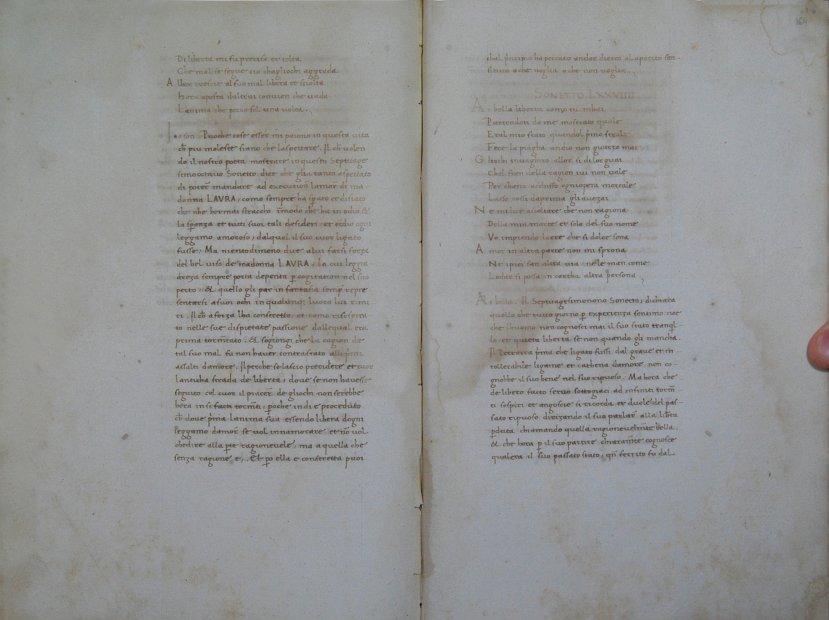 Di liberta mi fu precisa et tolta
Che mal se segue cio chagliochi aggrada
Alhor corse al suo mal libera et sciolta
Hora aposta daltrui convien che vada
Lanima che pecco sol una volta.
cose esser mi paiono in questa vita
che piu moleste siano che laspettare. Il che volen
do il nostro poeta mostrare in questo Septuage
simo octavo Sonetto, dice che gia tanto aspettato
di poter mandare ad execution lamor di ma
donna LAURA, como sempre ha sperato et disiato
che nhe hormai straccho, immodo che ha in odio &
la speranza et tutti suoi tali desideri et etdio ogni
leggamo amoroso, dalqual il suo cuor ligato
fusse. Ma nientedimeno due altri
del bel viso de madonna LAURA, la cui leggia
dreza sempre porta depenta per cogitation nel suo
petto & quello gli par in fantasia sempre repre
sentarsi a suoi ochi in qualunque luoco lui rimi
ri. Il che a forza lha constretto, et como risospin
to nelle sue dispietate passione dallequal era
prima tormentato. & sogiongi che la cagion de
tal suo mal fu non haver contrastato alli primi
assalti damore. Il perche se lascio precidere et
lanticha strada de liberta, dove se non havesse
seguito col cuor il piacer de gliochi non serebbe
poche indi e proceduto
che dove prima lanima sua essendo libera dogni
leggamo damor se vol innamorare et non vol
obedire alla parte ragionevele, ma a quella che
senza ragione e. Et pero ella e constretta puoi
164
chal principio ha peccato andar dietro al apetito sen
sitivo a che voglia a che non voglia.
SONETTO LXXVIIII
Ahi bella liberta como tu mhai
Partendoti da me mostrato quale
Era il mio stato quando il primo strale
Fece la piagha ondio non guarro mai
Gliochi invaghiro allor si de lor guai
Chel fren della ragion ivi non vale
Per channo aschifo ogniopera mortale
Lasso cosi da prima gli avezai
Ne mi lice ascoltare chi non ragiona
Della mia morte et sol del suo nome
Vo empiendo laere che si dolce sona
Amor in altra parte non mi sprona
Ne i pie san altra via ne le man come
Lodar si possa in carthe altra persona
Ahi bella. Il Septuagesimonono Sonetto, dichiara
quello che tutto giorno per experienza sentimo zoe
che lhuomo non cognosci mai il suo stato tranquil
lo, et quieta liberta, se non quando gli mancha.
Il Petrarca prima che ligato fussi dal grave et in
tollerabile ligame et cathena damore non co
gnobbe il suo bene nel suo riposo. Ma hora che
de libero fatto servo sottoposto ad infiniti tormen
ti sospiri et angoscie si ricorda et duele del pas
sato riposo, drizando il suo parlar alla liberta
perduta, chiamando quella ragionevelmente bella.
& che hora per il suo partire chiaramente cognosce
qualera il suo passato stato, quando ferrito fu dal